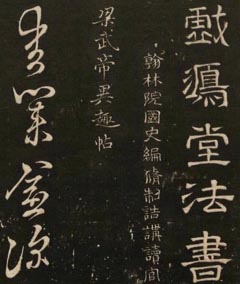 戲鴻堂法書
翰林院國史編脩制誥講讀官
梁武帝異趣帖
愛業愈深